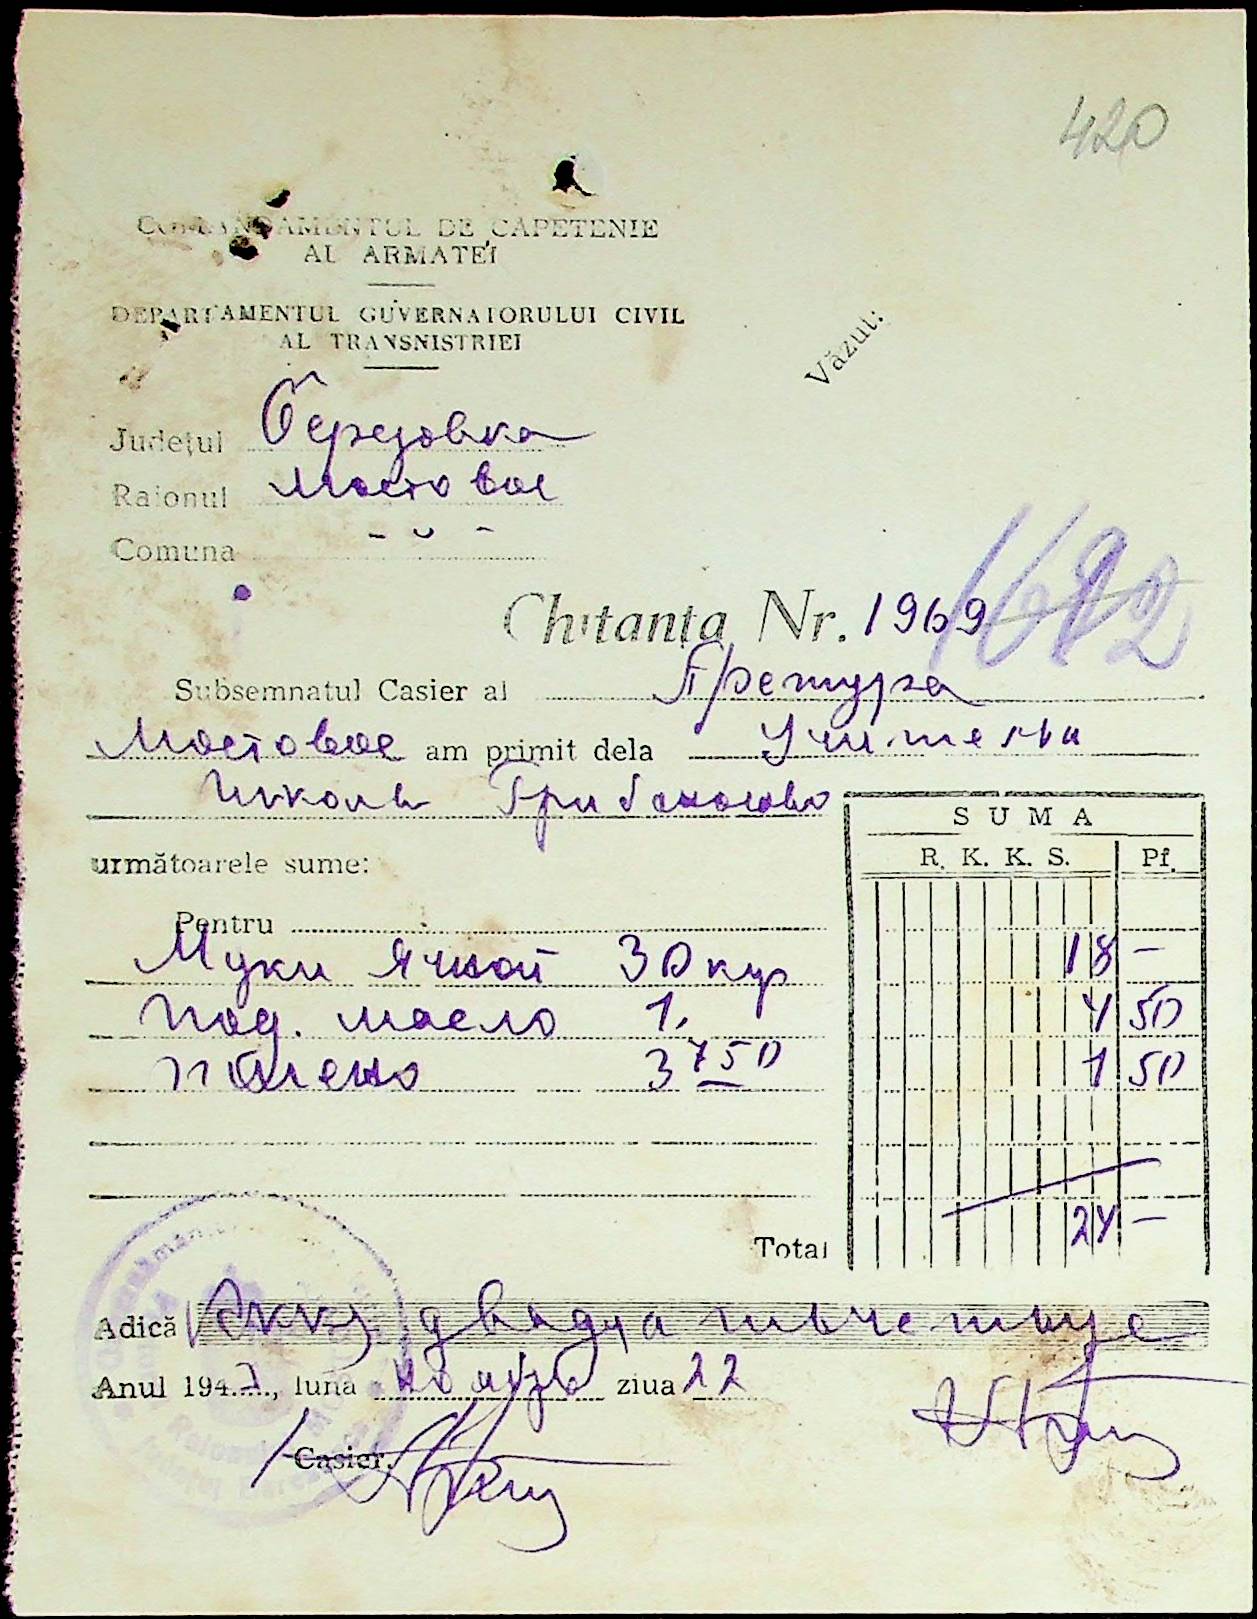 420
COMANDAMENTUL DE CAPETENIE
AL ARMATEI
DEPARTAMENTUL GUVERNATORULUI CIVIL
AL TRANSNISTRIEI
Văzut:
Județul Березовка
Raionul Мостовое
Comuna - " -
Chitanța Nr. 1969
Subsemnatul Casier al Претура
Мостовое am primit dela Учитель
школы
următoarele sume:
SUMA
R. K. K. S. Pf.
Pentru
Муки ячной 30 кгр 18 —
под. масло 1, 4 50
пшено 3 750 1 50
Total 24 —
Adică двадца четыре
Anul 1942, luna ноябр ziua 22
Casier,